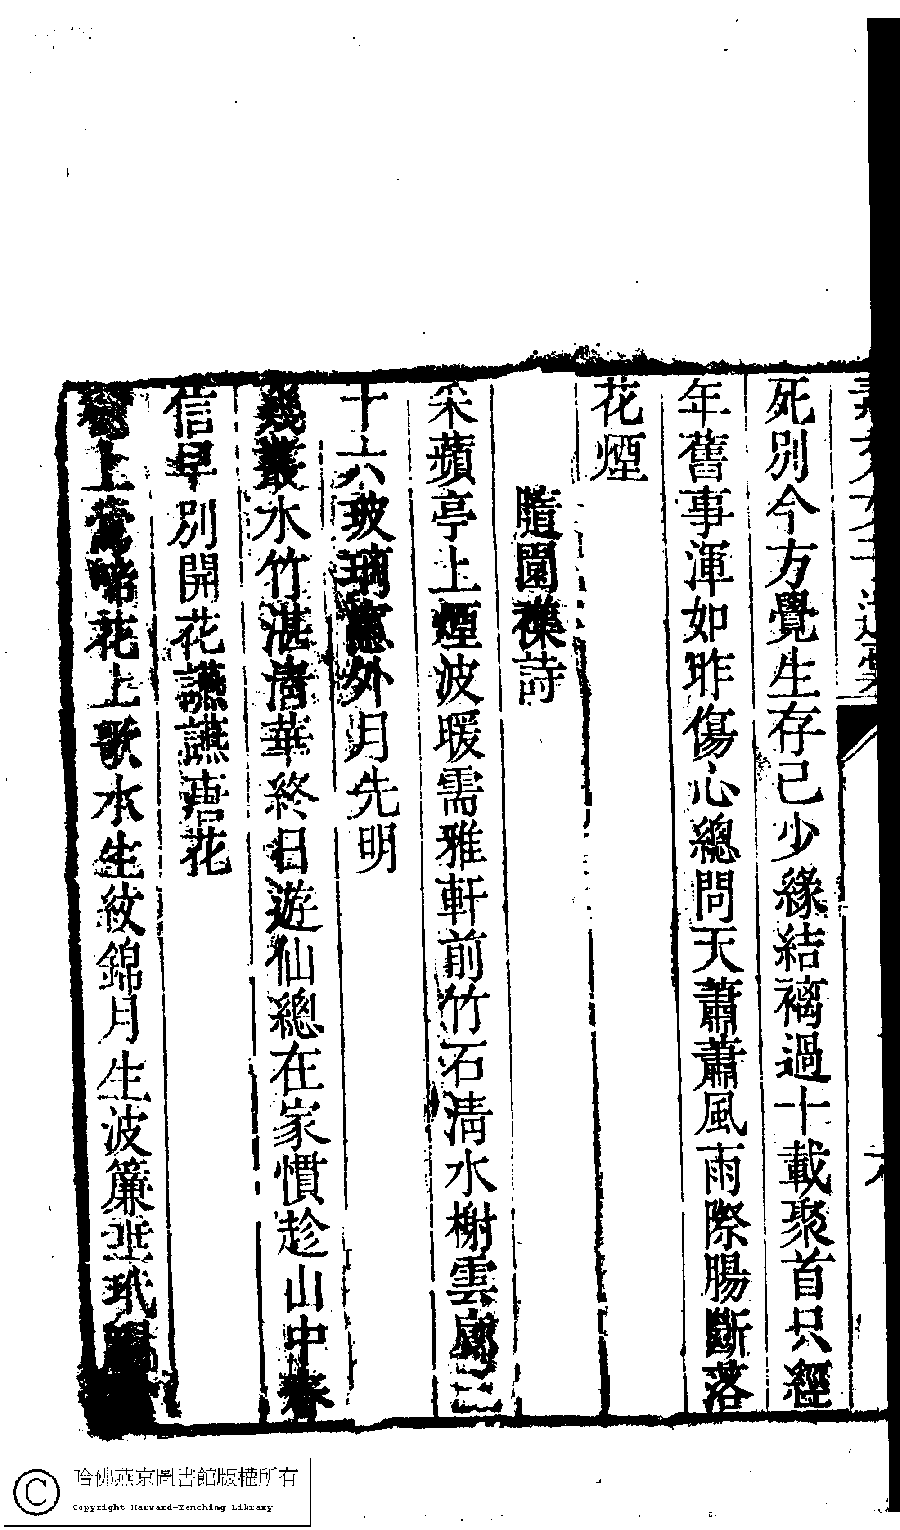 死別今方覺生存己少緣結褵過十載聚首只經
年舊事渾如昨傷心總問天蕭蕭風雨際腸斷落
花煙
隨園襍詩
采蘋亭上煙波暖需雅軒前竹石淸水榭雲廊三
十六玻璃窻外月先明
幾叢水竹湛淸華終日遊仙總在家慣趁山中春
信早別開花讌讌唐花
上鶯啼花上歌水生紋錦月生波簾垂玳
哈佛燕京圖書館版權所有
Copyright Harvard-Yenching Library